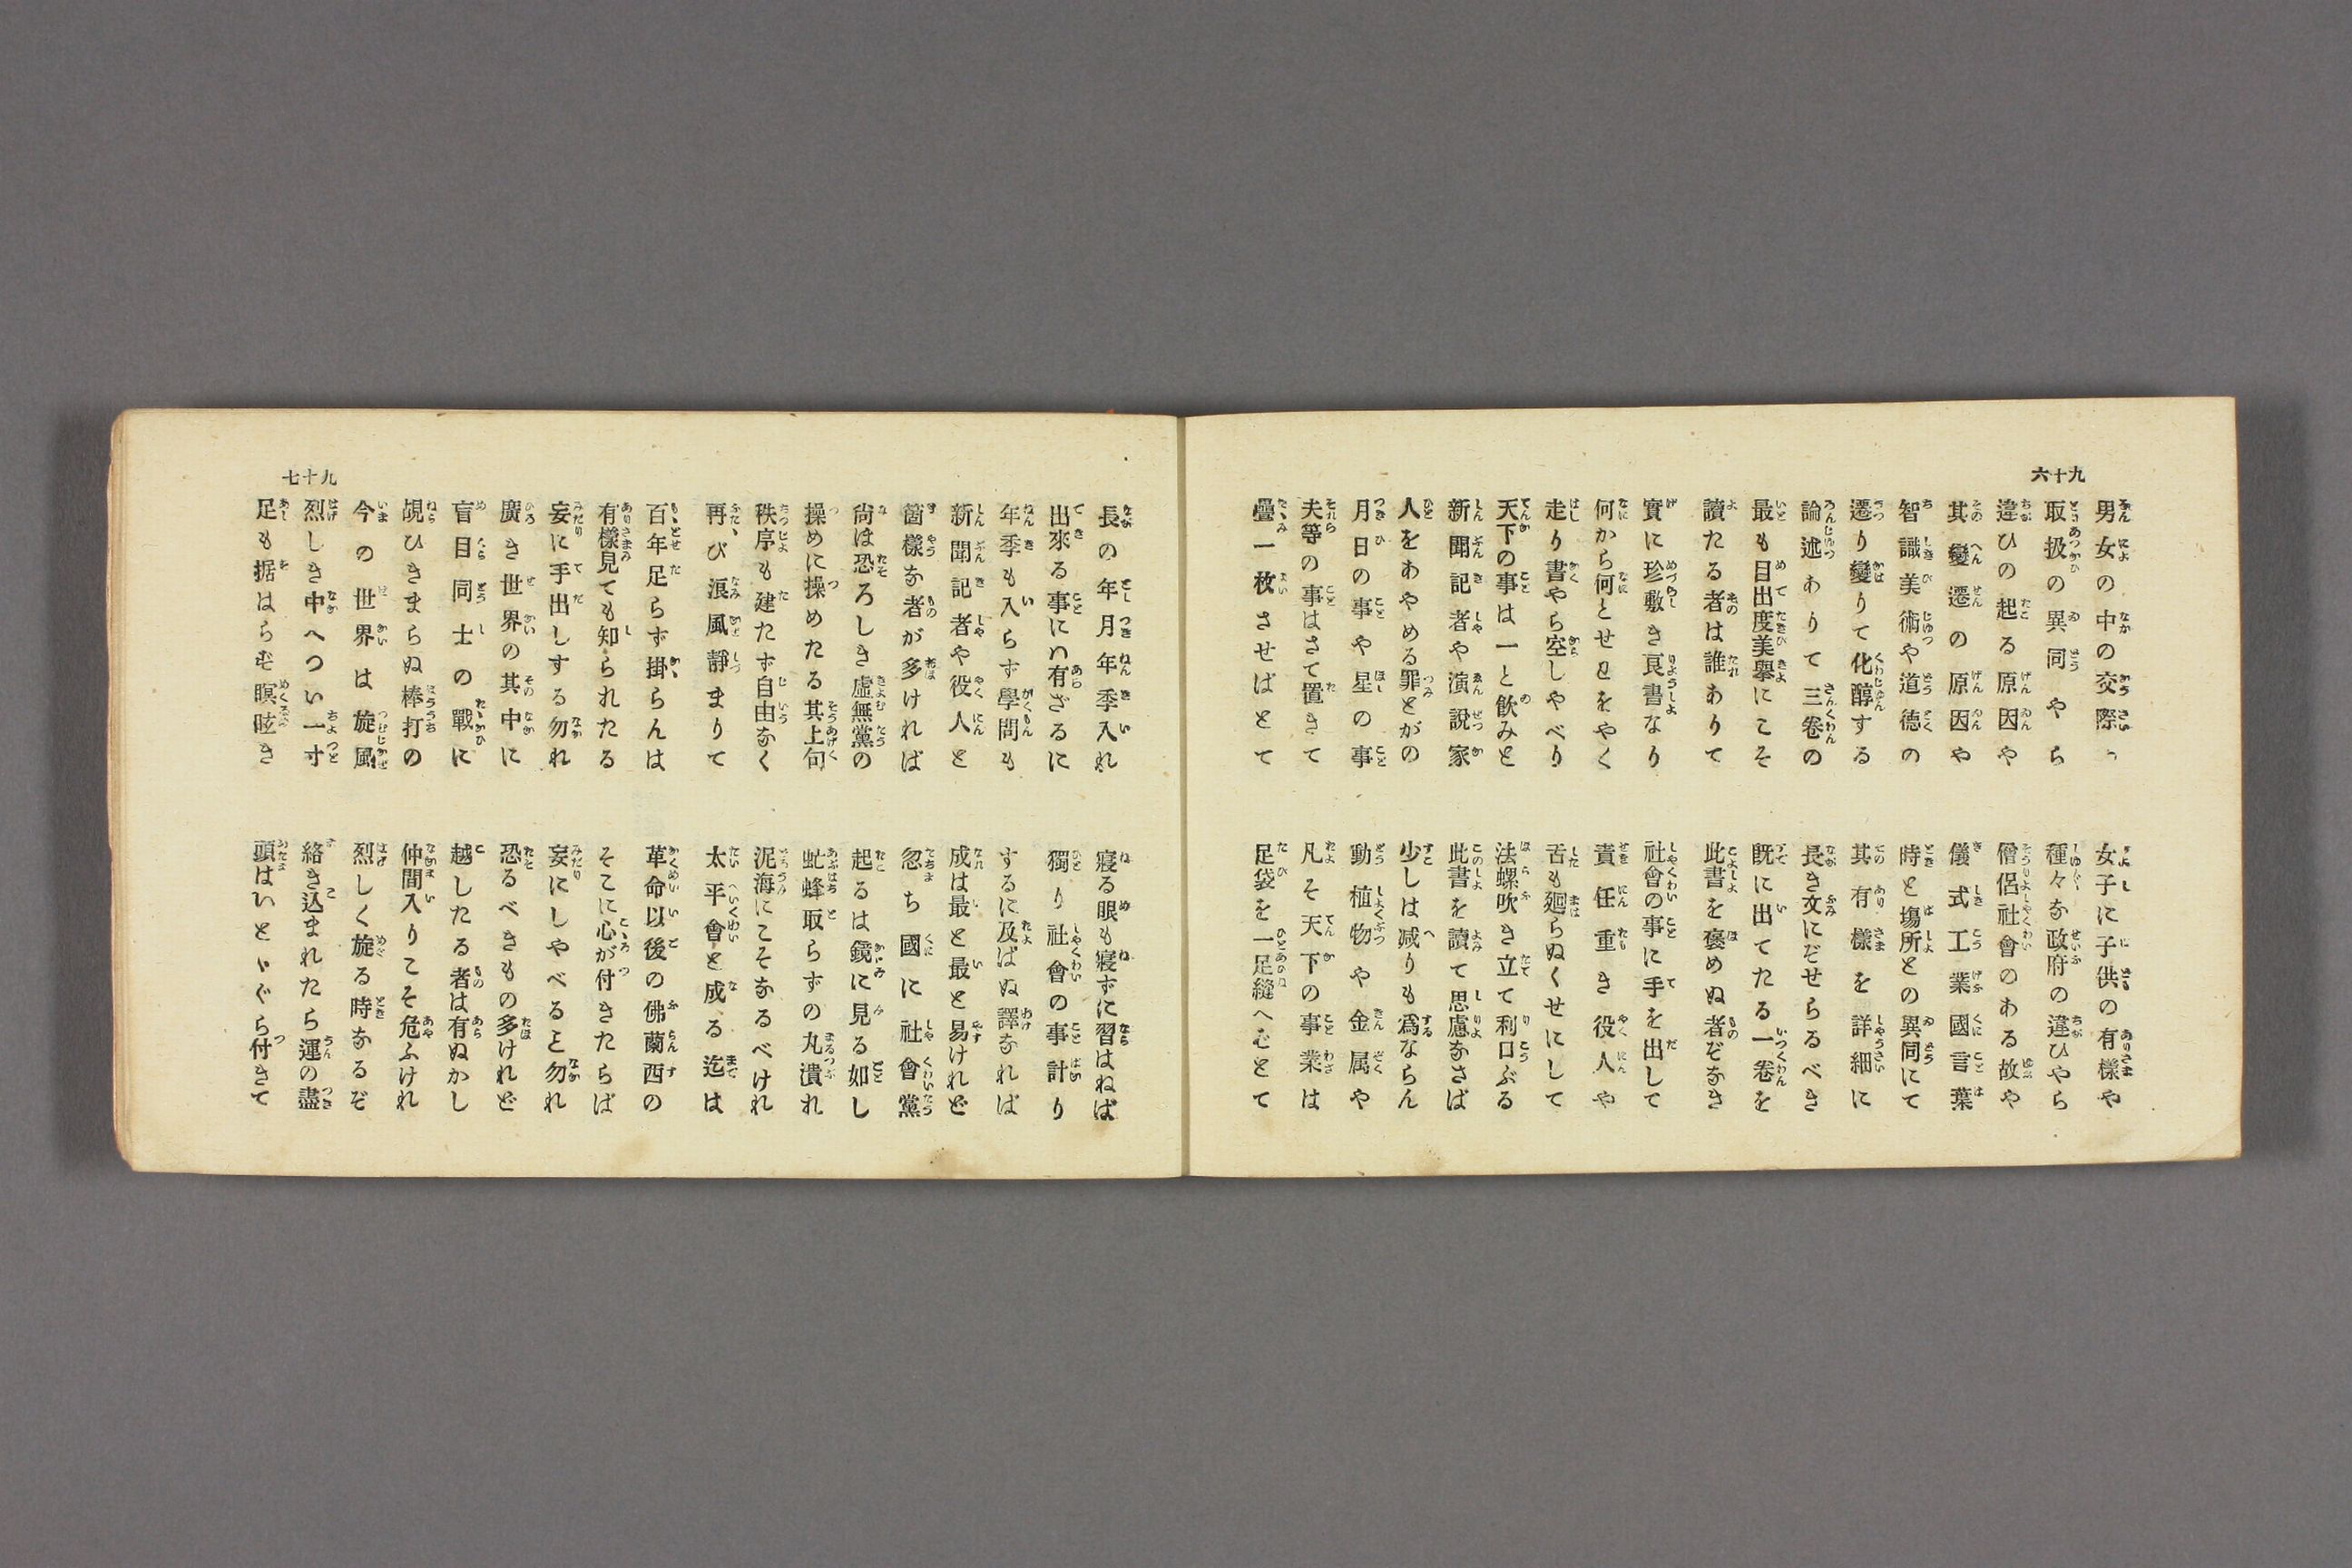 九十六
男女の中の交際や　女子に子供の有樣や
取扱の異同やら　種々な政府の違ひやら
違ひの起る原因や　僧侶社會のある故や
其變遷の原因や　儀式工業國言葉
智識美術や道德の　時と塲所との異同にて
遷り變りて化醇する　其有樣を詳細に
論述ありて三卷の　長き文にぞせらるべき
最も目出度美擧にこそ　既に出てたる一卷を
讀たる者は誰ありて　此書を褒めぬ者ぞなき
實に珍敷き良書なり　社會の事に手を出して
何から何とせ日をやく　責任重き役人や
走り書やら空しやべり　舌も廻らぬくせにして
天下の事は一と飮みと　法螺吹き立て利口ぶる
新聞記者や演說家　此書を讀て思慮なさば
人をあやめる罪とがの　少しは減りも爲ならん
月日の事や星の事　動植物や金属や
夫等の事はさて置きて　凡そ天下の事業は
疊一枚させばとて　足袋を一足縫へむとて
九十七
長の年月年季入れ　寢る眼も寢ずに習はねば
出來る事に〻有ざるに　獨り社會の事計り
年季も入らず學問も　するに及ばぬ譯なれば
新聞記者や役人と　成は最と最と易けれど
箇樣な者が多ければ　忽ち國に社會黨
尙は恐ろしき虛無黨の　起るは鏡に見る如し
操めに操めたる其上句　虻蜂取らずの丸潰れ
秩序も建たず自由なく　泥海にこそなるべけれ
再び浪風靜まりて　太平會と成る迄は
百年足らず掛らんは　革命以後の佛蘭西の
有樣見ても知られたる　そこに心が付きたらば
妄に手出しする勿れ　妄にしやべると勿れ
廣き世界の其中に　恐るべきもの多けれど
盲目同士の戰に　越したる者は有ぬかし
覘ひきまらぬ棒打の　仲間入りこそ危ふけれ
今の世界は旋風　烈しく旋る時なるぞ
烈しき中へつい一寸　絡き込まれたら運の盡
足も据はらむ瞑眩き　頭はいとゞぐら付きて